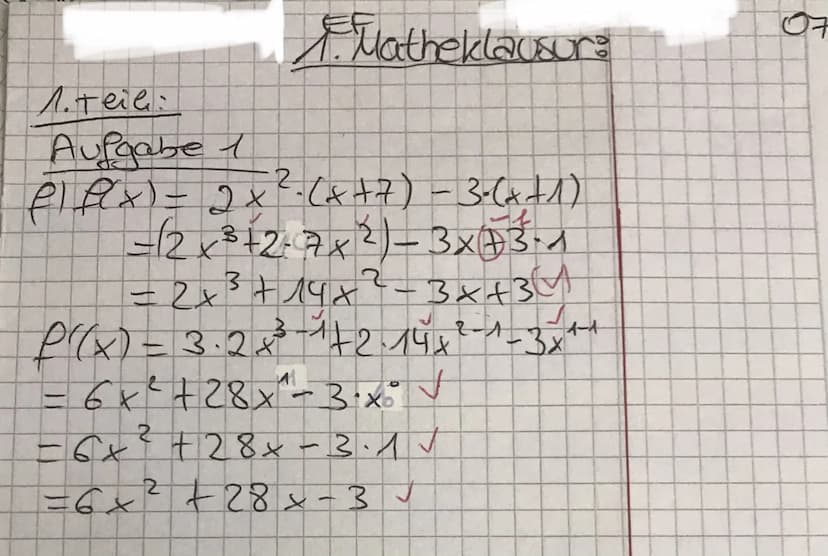 EF
1. Matheklausur:
07
1. Teil:
Aufgabe 1
f) f(x) = 2x²·(x+7) - 3·(x+1)
= (2x³+2·7x²) - 3x+3·1
-1
= 2x³ + 14x² - 3x+3 (✓)
f'(x) = 3·2x³⁻¹+2·14x²⁻¹-3x¹⁻¹
= 6x² + 28x¹ - 3·x⁰ ✓
= 6x² + 28x - 3·1 ✓
= 6x² + 28x - 3 ✓